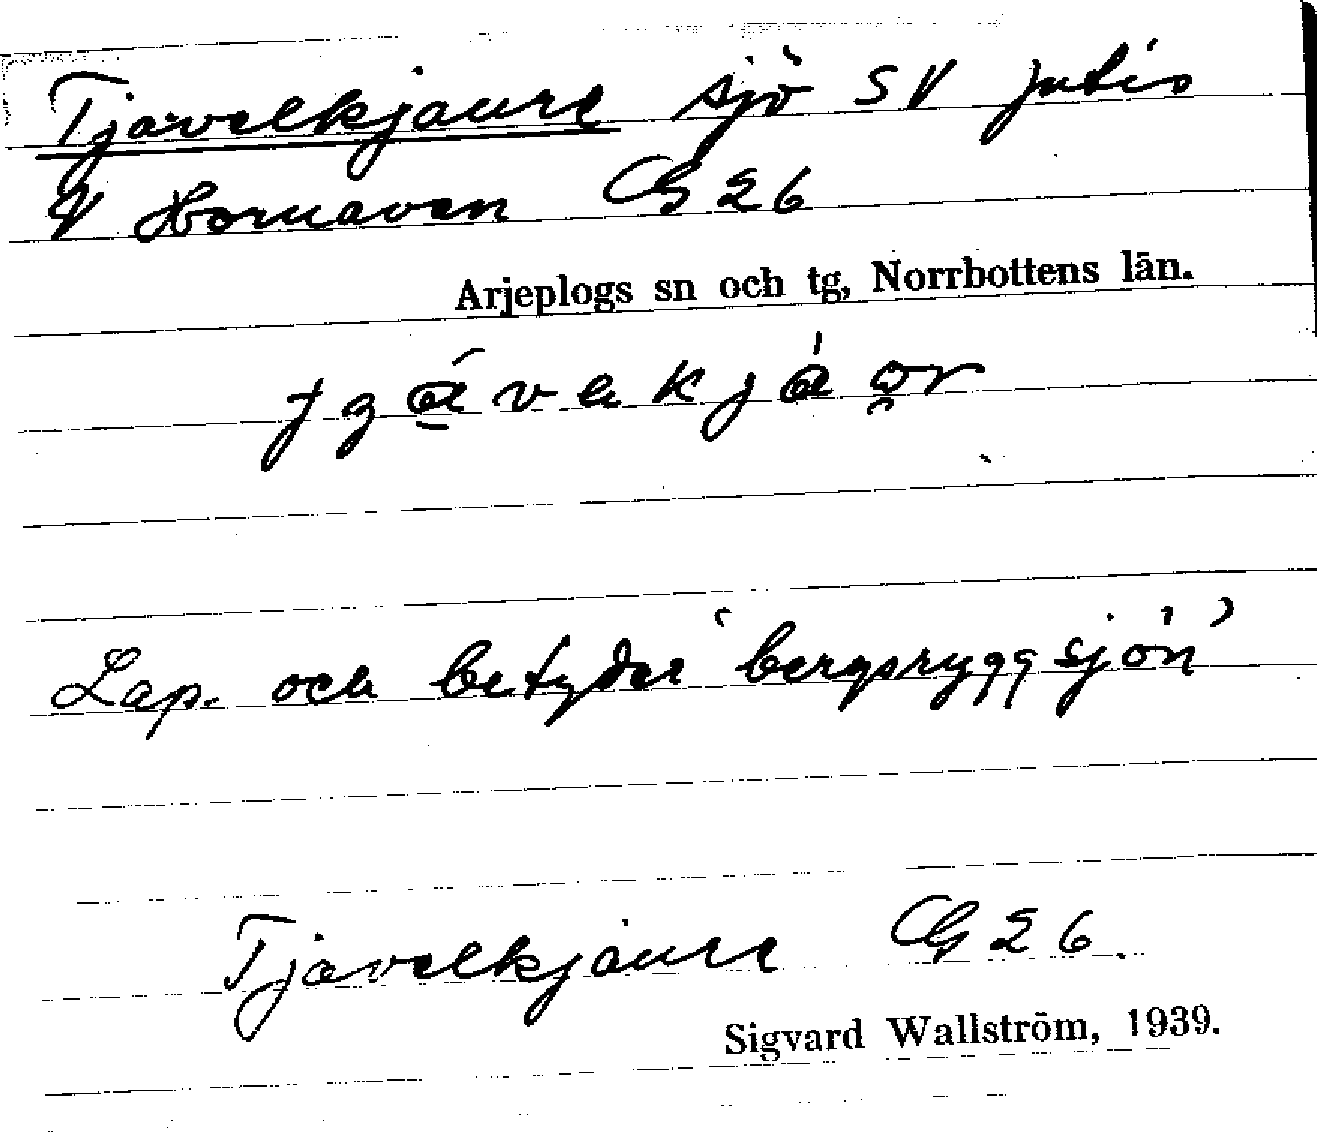 Tjavelkjaure sjö SV Jutis
V Hornavan GS 26
Arjeplogs sn och tg, Norrbottens län.
Lap. och betyder 'bergsryggsjön'
Tjavelkjaure GS 26
Sigvard Wallström, 1939.